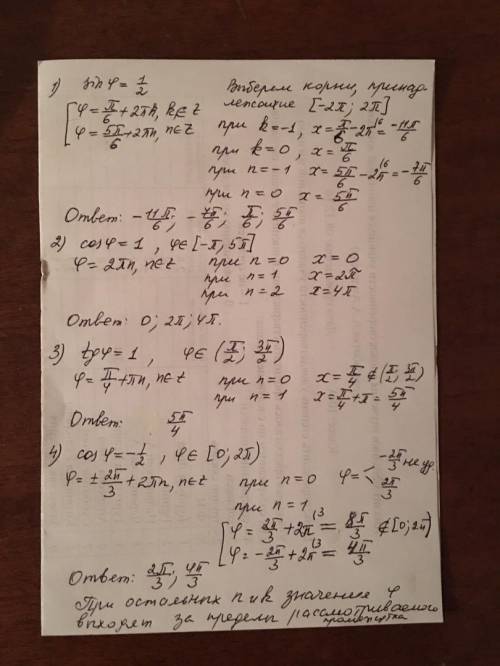 1) sin φ = 1/2
[ φ = π/6 + 2πk, k∈Z
φ = 5π/6 + 2πn, n∈Z
Выберем корни, принад-
лежащие [-2π; 2π]
при k=-1, x = π/6 - 2π = -11π/6
при k=0, x = π/6
при n=-1 x = 5π/6 - 2π = -7π/6
при n=0 x = 5π/6
Ответ: -11π/6; -7π/6; π/6; 5π/6
2) cos φ = 1, φ∈[-π; 5π]
φ = 2πn, n∈Z
при n=0 x=0
при n=1 x=2π
при n=2 x=4π
Ответ: 0; 2π; 4π.
3) tg φ = 1, φ∈(π/2; 3π/2)
φ = π/4 + πn, n∈Z
при n=0 x = π/4 ∉ (π/2; 3π/2)
при n=1 x = π/4 + π = 5π/4
Ответ: 5π/4
4) cos φ = -1/2, φ∈[0; 2π)
φ = ± 2π/3 + 2πn, n∈Z
при n=0 φ = < -2π/3 не уд.
2π/3
при n=1
[ φ = 2π/3 + 2π = 8π/3 ∉ [0; 2π)
φ = -2π/3 + 2π = 4π/3
Ответ: 2π/3; 4π/3
При остальных n и k значение φ
выходят за пределы рассматриваемого
промежутка